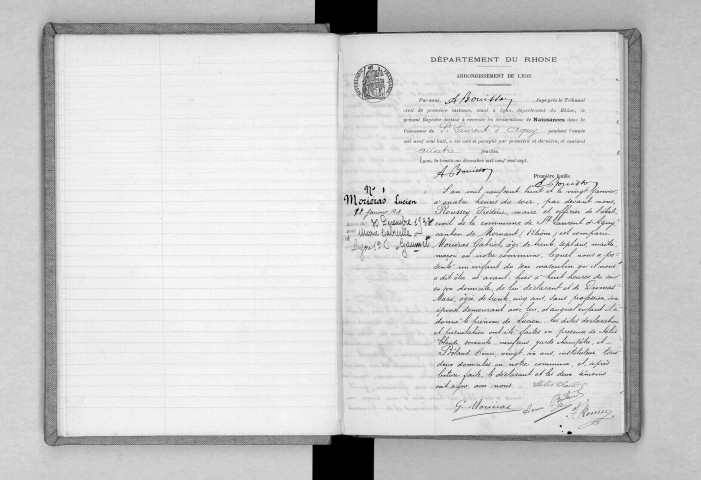 DÉPARTEMENT DU RHONE
ARRONDISSEMENT DE LYON
Par nous, A Bouisson Juge près le Tribunal
civil de première instance, séant à Lyon, département du Rhône, le
présent Registre destiné à recevoir les déclarations de Naissances dans la
Commune de St Laurent d'Agny pendant l'année
mil neuf cent huit, a été coté et paraphé par première et dernière, et contient
quatre feuilles.
Lyon, le trente-un décembre mil neuf cent sept.
A Bouisson
Première feuille
A Bouisson
N° 1
Moiéras Lucien
30 Décembre 1938
Marie Gabrielle
Lyon
L'an mil neuf cent huit et le vingt Janvier
à quatre heures du soir, par devant nous,
Rousset Frédéric, maire et officier de l'état
civil de la commune de St Laurent d'Agny
canton de Mornant (Rhône) est comparu
Moiéras Gabriel, âgé de trente sept ans, maître
maçon en notre commune, lequel nous a pré-
senté un enfant du sexe masculin qu'il nous
a dit être né avant hier à huit heures du soir
en son domicile, de lui déclarant et de
Marie, âgée de trente cinq ans, sans profession, son
épouse demeurant avec lui, et auquel enfant il a
donné le prénom de Lucien. Les dites déclaration
et présentation ont été faites en présence de
Claude soixante neuf ans, garde champêtre, et
vingt six ans, instituteur, tous
deux domiciliés en notre commune, et, après
lecture faite, le déclarant et les deux témoins
ont signé avec nous.
G. Moiéras